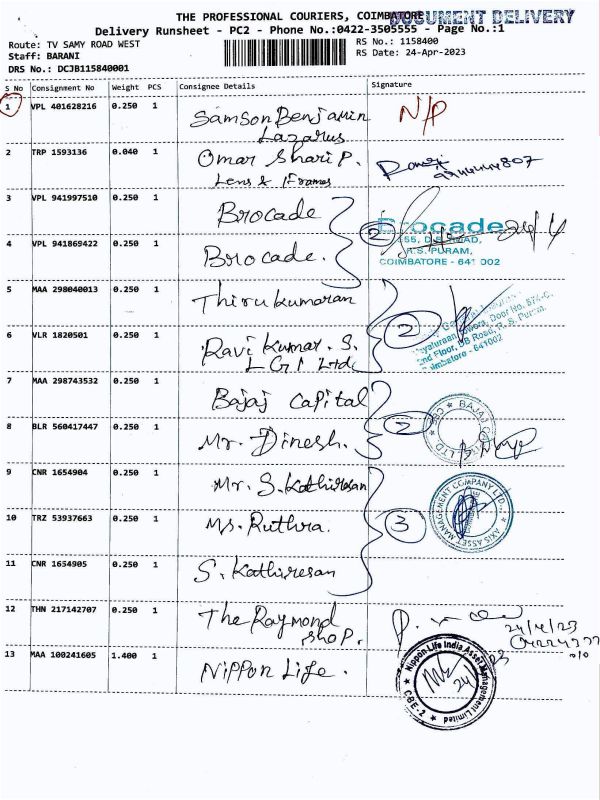 THE PROFESSIONAL COURIERS, COIMBATORE
DOCUMENT DELIVERY
Delivery Runsheet - PC2 - Phone No.:0422-3505555 - Page No.:1
Route: TV SAMY ROAD WEST
RS No.: 1158400
Staff: BARANI
RS Date: 24-Apr-2023
DRS No.: DCJB115840001
S No Consignment No Weight PCS Consignee Details Signature
1 VPL 401628216 0.250 1 Samson Benjamin N/P
Lazarus
2 TRP 1593136 0.040 1 Omar Sharif.
Lens & Frames
3 VPL 941997510 0.250 1 Brocade
Brocade
2
R.S. PURAM,
COIMBATORE - 641 002
4 VPL 941869422 0.250 1 Brocade.
5 MAA 298040013 0.250 1 Thirukumaran
2
6 VLR 1820501 0.250 1 Ravi Kumar. S.
LGI Ltd
2nd Floor, DB Road, R. S. Puram,
Coimbatore - 641002
7 MAA 298743532 0.250 1 Bajaj Capital
2
8 BLR 560417447 0.250 1 Mr. Dinesh.
9 CNR 1654904 0.250 1 Mr. S. Kathiresan
AXIS ASSET MANAGEMENT COMPANY LTD.
10 TRZ 53937663 0.250 1 Ms. Ruthra.
3
11 CNR 1654905 0.250 1 S. Kathiresan
12 THN 217142707 0.250 1 The Raymond
Shop.
24/4/23
13 MAA 100241605 1.400 1 Nippon Life.
Nippon Life India Asset Management Limited
CBE-2